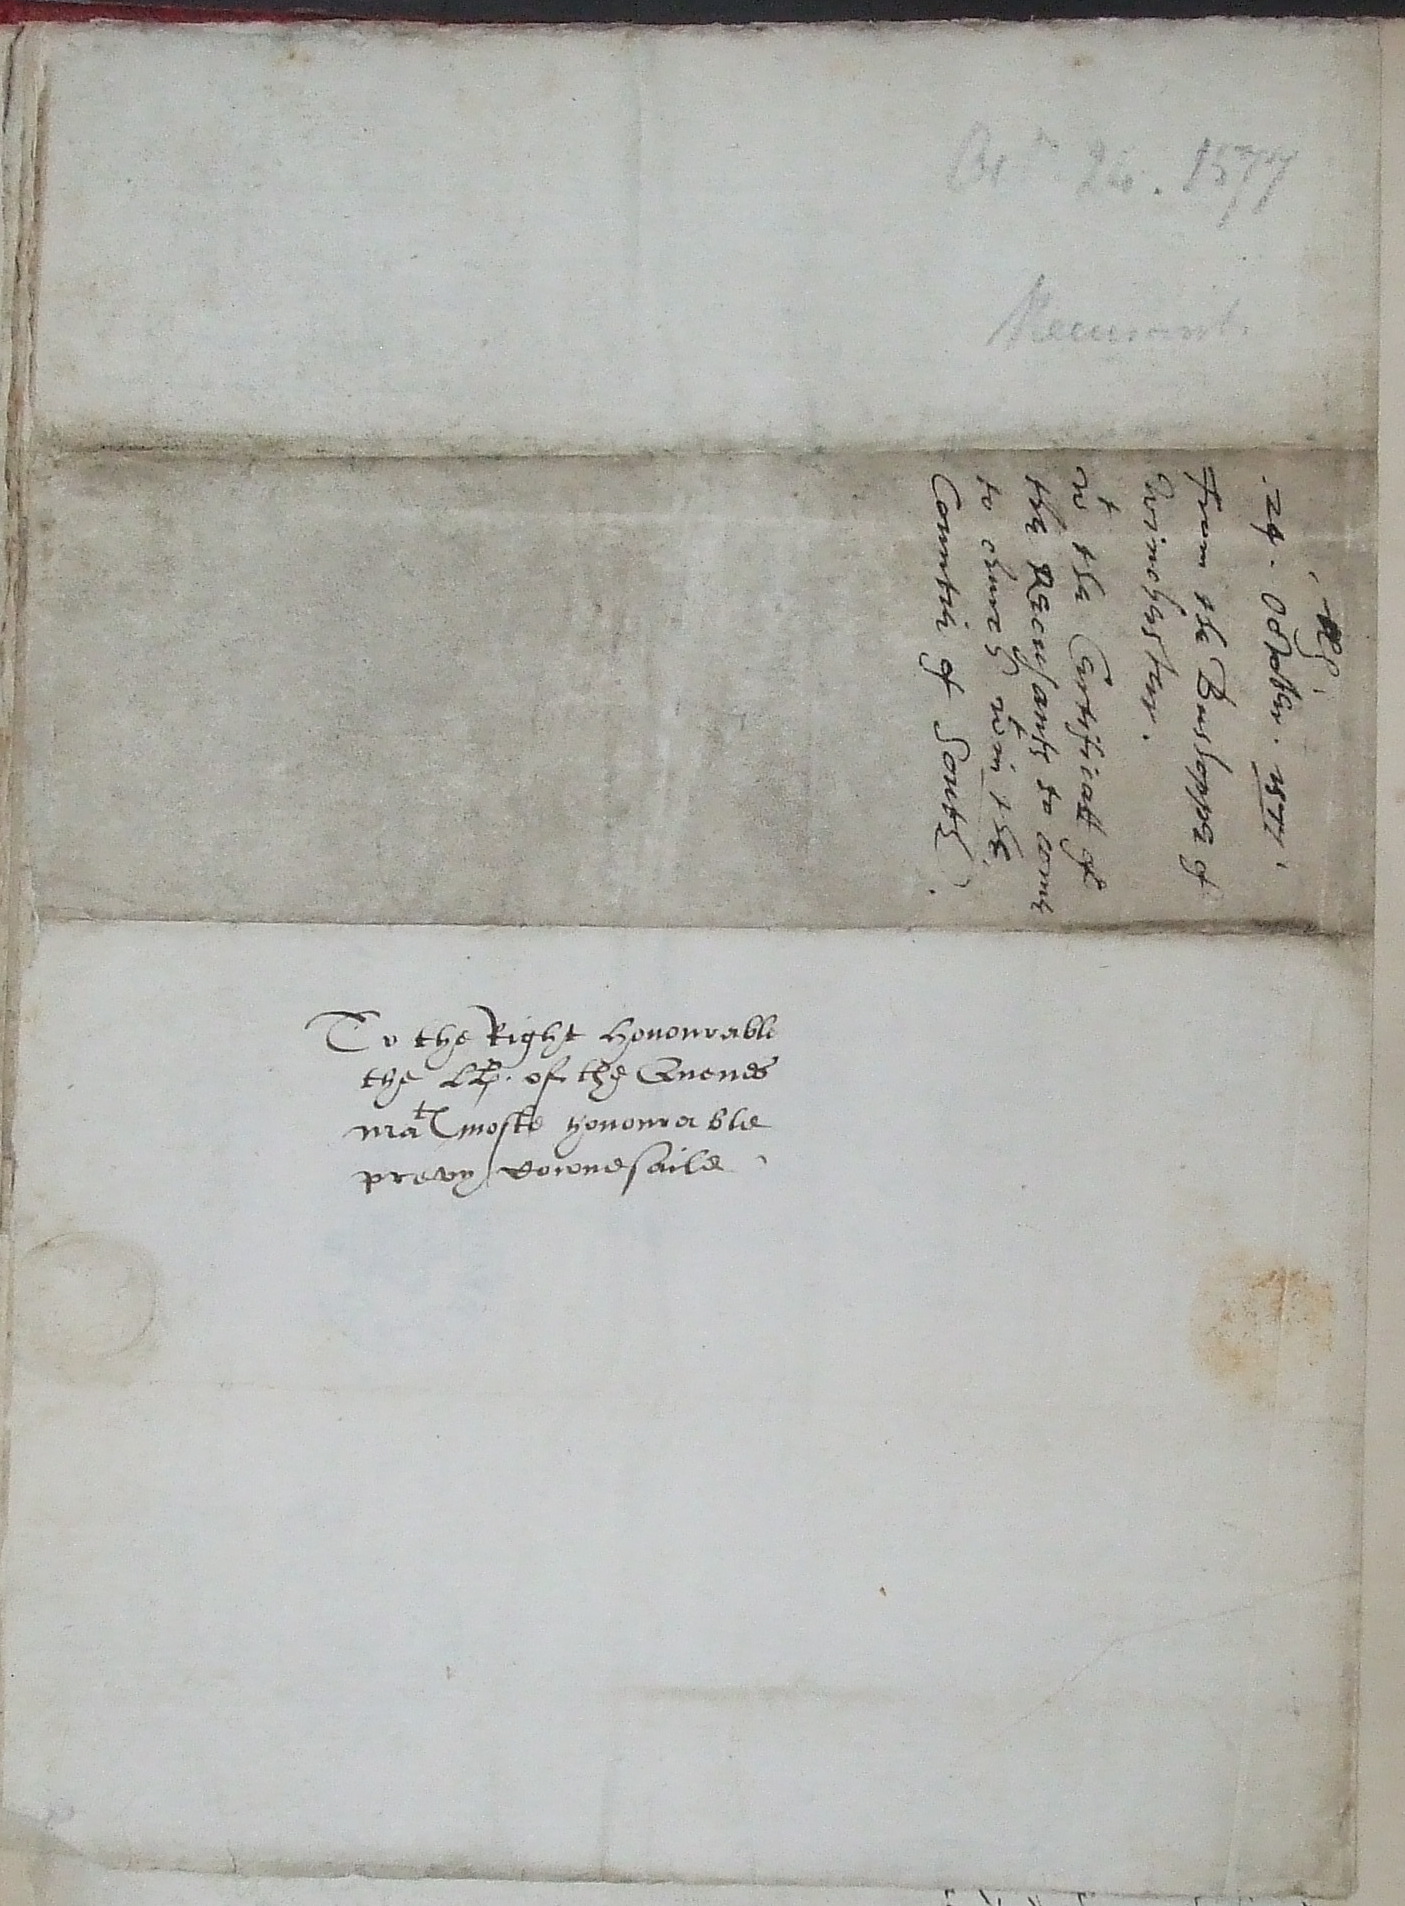 Oct 24. 1577
Recusant.
.24. October. 1577.
From the Busshoppe of
Winchester.
wt the Certificatt of
the Recusants to come
to church wtin the
Countie of South.
To the Right honourable
the LLp. of the Quenes
matꝭ moste honourable
prevy Counesaile